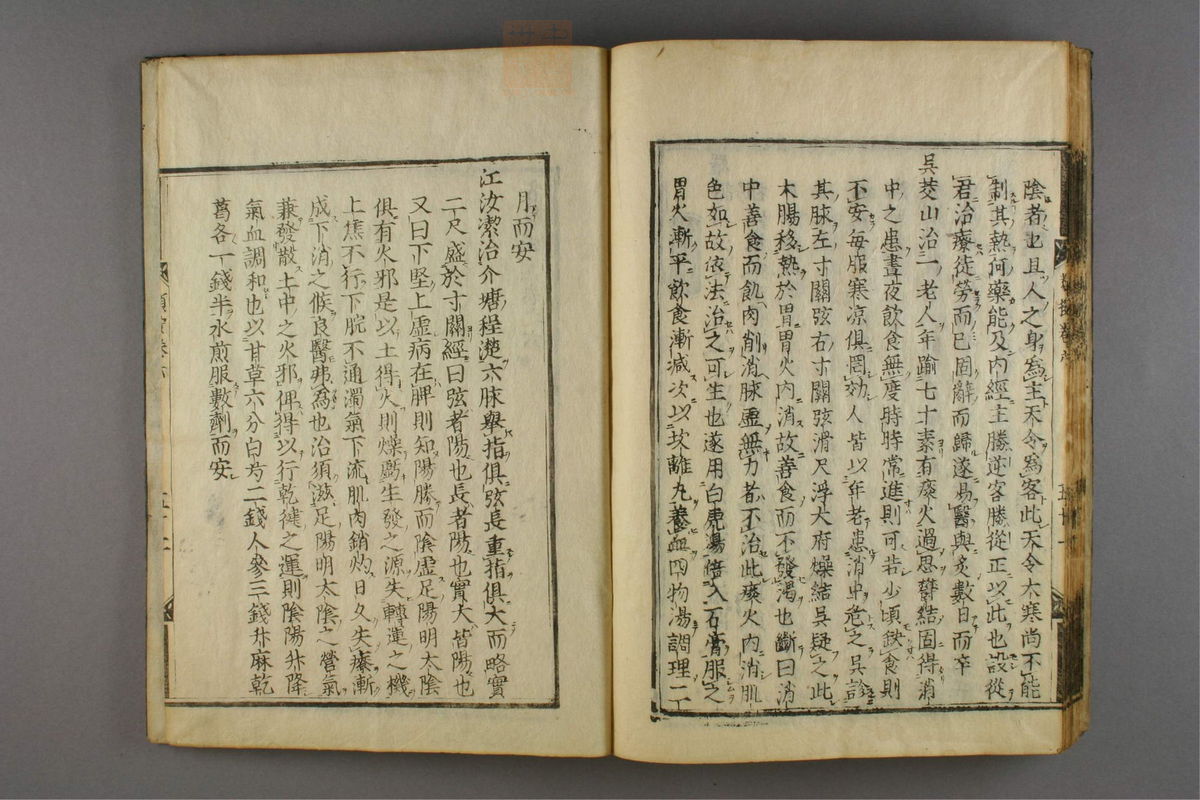 陰者也且人之身為主天令為客此天令大寒尚不能
制其熱何藥能及內經主勝逆客勝從正以此也設從
君治療徒勞而已固辭而歸遂易醫與灸數日而卒
吳茭山治一老人年踰七十素有痰火過思欝結因得消
中之患晝夜飲食無度時時常進則可若少頃缺食則
不安每服寒凉俱罔効人皆以年老患消中危之吳診
其脉左寸關弦右寸關弦滑尺浮大府燥結吳疑之此
大腸移熱於胃胃火內消故善食而不發渴也斷曰消
中善食而飢肉削消脉虛無力者不治此痰火內消肌
色如故依法治之可生也遂用白虎湯倍入石膏服之
胃火漸平飲食漸減次以坎離丸養血四物湯調理二
月而安
江汝潔治介塘程濋六脉舉指俱弦長重指俱大而略實
二尺盛於寸關經曰弦者陽也長者陽也實大皆陽也
又曰下堅上虛病在脾則知陽勝而陰虛足陽明太陰
俱有火邪是以土得火則燥虧生發之源失轉運之機
上焦不行下脘不通濁氣下流肌肉銷灼日久失療漸
成下消之候良醫弗為也治須滋足陽明太陰之營氣
兼發散上中之火邪俾得以行乾健之運則陰陽升降
氣血調和也以甘草六分白芍二錢人參三錢升麻乾
葛各一錢半水煎服數劑而安